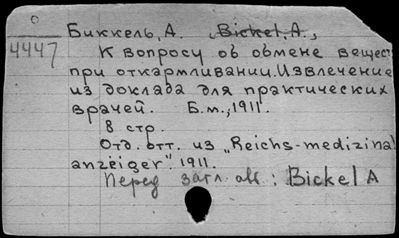 0
4447
Биккель, А. Bickel, A.,
К вопросу об обмене вещест
при откармливании. Извлечение
из доклада для практических
врачей. Б.м., 1911.
8 стр.
Отд. отт. из „Reichs-medizinal
anzeiger". 1911.
Перед загл. авт.: Bickel A